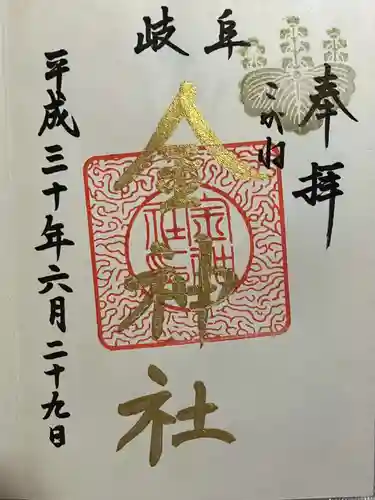 奉拝
岐阜
こがね
金神社
平成三十年六月二十九日